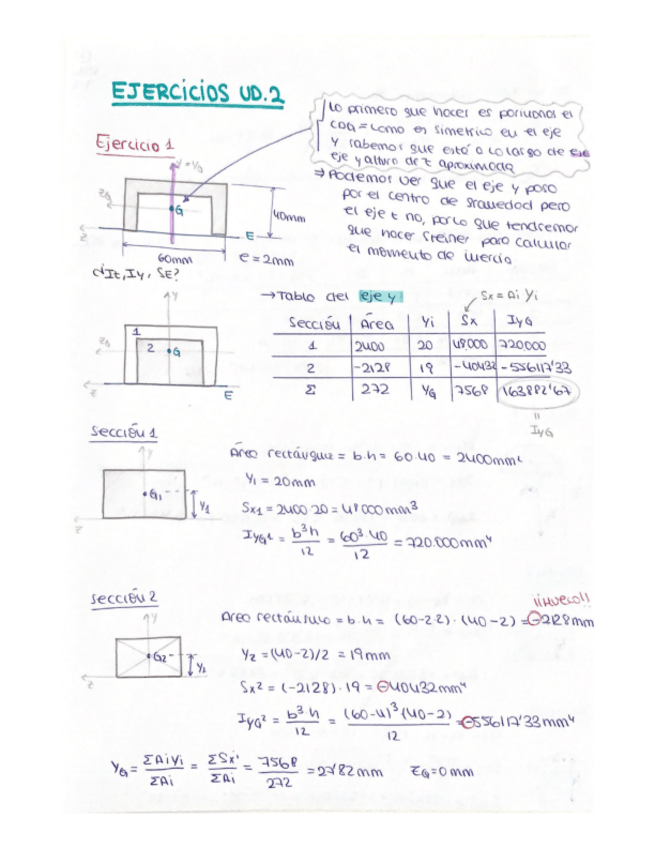 EJERCICIOS UD.2
Lo primero que hacer es ponernos el
CDG = como en simetrico eu el eje
y sabemos que está a lo largo de ese
eje y altura de z aproximada
Ejercicio 1
y = yG
⇒ Podemos ver que el eje y pasa
por el centro de gravedad pero
el eje z no, por lo que tendremos
que hacer Steiner para calcular
el momento de inercia
zG
G
40mm
z
E
60mm
e = 2mm
¿Iz, Iy, SE?
→ Tabla del eje y
Sx = Ai Yi
Sección | Área | Yi | Sx | IyG
1 | 2400 | 20 | 48000 | 720000
2 | -2128 | 19 | -40432 | -556117'33
Σ | 272 | YG | 7568 | 163882'67
=
IyG
y
1
zG
2
G
z
E
Sección 1
y
G1
y1
z
Área rectángulo = b.h = 60.40 = 2400mm²
Y1 = 20mm
Sx1 = 2400.20 = 48000mm³
IyG1 = b³h/12 = 60³.40/12 = 720.000mm⁴
Sección 2
y
G2
y2
z
¡¡HUECO!!
Área rectángulo = b.h = (60-2.2).(40-2) = -2128mm
Y2 = (40-2)/2 = 19mm
Sx2 = (-2128).19 = -40432mm⁴
IyG2 = b³.h/12 = (60-4)³(40-2)/12 = -556117'33mm⁴
YG = ΣAiYi/ΣAi = ΣSxi/ΣAi = 7568/272 = 27'82mm    ZG = 0mm